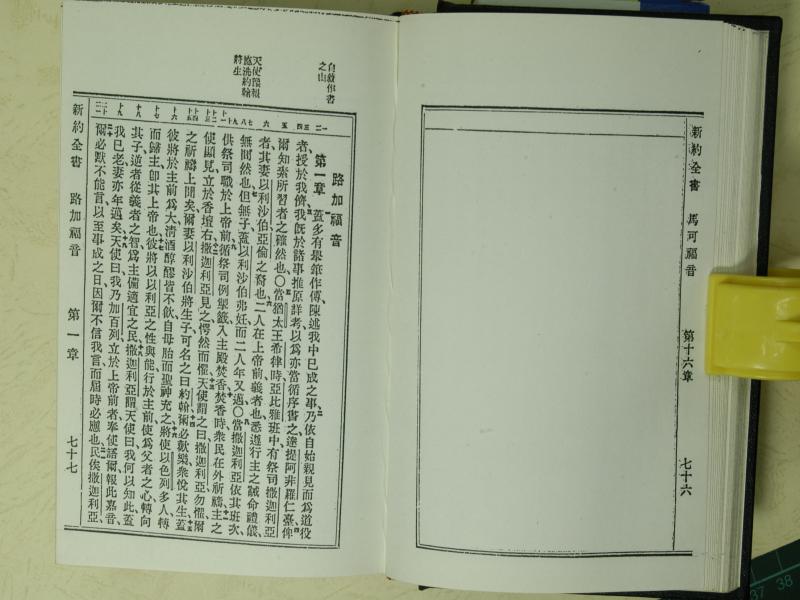 新約全書 馬可福音 第十六章 七十六
自敘作書
之由
天使預報
施洗約翰
將生
路加福音
第一章 蓋多有舉筆作傳、陳述我中已成之事、乃依自始親見而爲道役
者、授於我儕、我旣於諸事推原詳考、以爲亦當循序書之、達提阿非羅仁臺、俾
爾知素所習者之確然也、〇當猶太王希律時、亞比雅班中、有祭司撒迦利亞
者、其妻以利沙伯、亞倫之裔也、二人在上帝前、義者也、悉遵行主之誡命禮儀、
無間然也、但無子、蓋以利沙伯弗妊、而二人年又邁、〇當撒迦利亞依其班次、
供祭司職於上帝前、循祭司例、掣籤入主殿焚香、焚香時、衆民在外祈禱、主之
使顯見、立於香壇右、撒迦利亞見之、愕然而懼、天使謂之曰、撒迦利亞勿懼、爾
之祈禱上聞矣、爾妻以利沙伯將生子、可名之曰約翰、爾必歡樂、衆悅其生、蓋
彼將於主前爲大、清酒醇醪皆不飲、自母胎而聖神充之、將使以色列多人轉
而歸主、卽其上帝也、彼將以以利亞之性與能、行於主前、使爲父者之心轉向
其子、逆者從義者之智、爲主備適宜之民、撒迦利亞謂天使曰、我何以知此、蓋
我已老、妻亦年邁矣、天使曰、我乃加百列、立於上帝前者、奉使語爾、報此嘉音、
爾必默不能言、以至事成之日、因爾不信我言、而屆時必應也、民俟撒迦利亞、
新約全書 路加福音 第一章 七十七